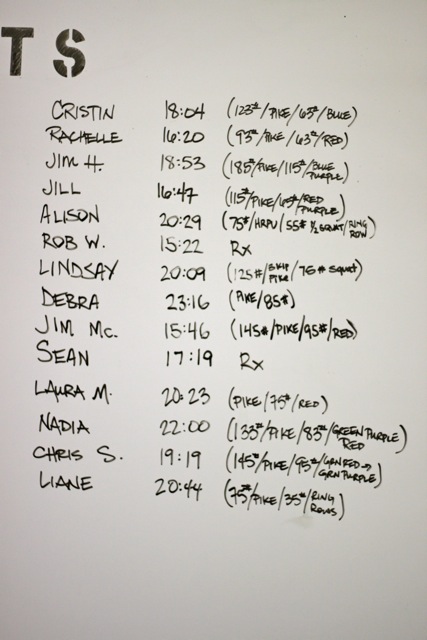 TS
CRISTIN 18:04 (123#/PIKE/63#/BLUE)
RACHELLE 16:20 (93#/PIKE/63#/RED)
JIM H. 18:53 (185#/PIKE/115#/BLUE PURPLE)
JILL 16:47 (115#/PIKE/65#/RED PURPLE)
ALISON 20:29 (75#/HRPU/55# 1/2 SQUAT/RING ROW)
ROB W. 15:22 Rx
LINDSAY 20:09 (125#/SKIP PIKE/75# SQUAT)
DEBRA 23:16 (PIKE/85#)
JIM Mc. 15:46 (145#/PIKE/95#/RED)
SEAN 17:19 Rx
LAURA M. 20:23 (PIKE/75#/RED)
NADIA 22:00 (133#/PIKE/83#/GREEN PURPLE RED)
CHRIS S. 19:19 (145#/PIKE/95#/GRN RED → GRN PURPLE)
LIANE 20:44 (75#/PIKE/35#/RING ROWS)